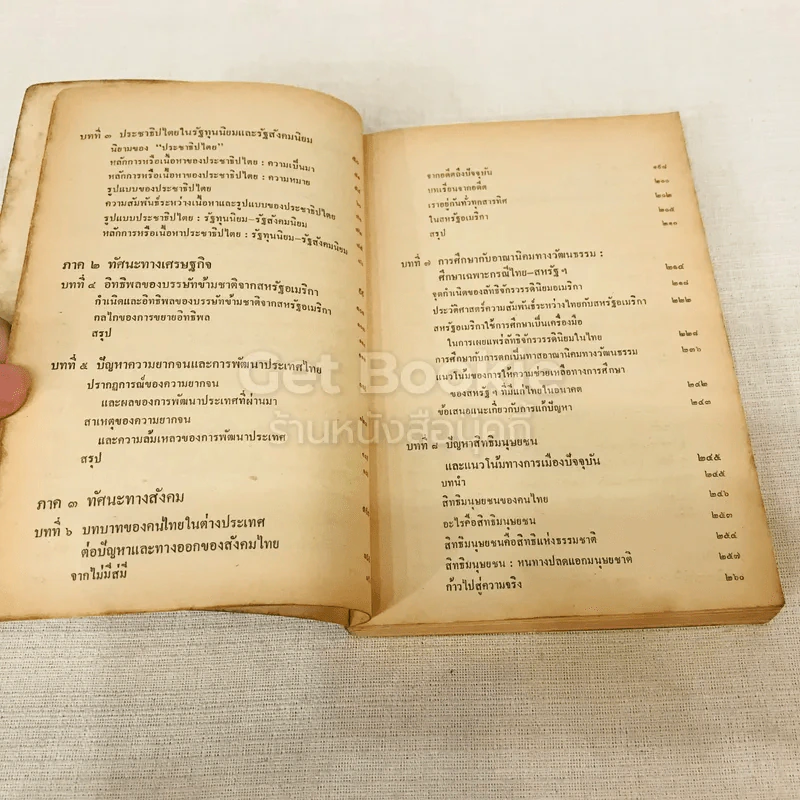 บทที่ ๓ ประชาธิปไตยในรัฐทุนนิยมและรัฐสังคมนิยม
นิยามของ "ประชาธิปไตย"
หลักการหรือเนื้อหาของประชาธิปไตย : ความเป็นมา
หลักการหรือเนื้อหาของประชาธิปไตย : ความหมาย
รูปแบบของประชาธิปไตย
ความสัมพันธ์ระหว่างเนื้อหาและรูปแบบของประชาธิปไตย
รูปแบบประชาธิปไตย : รัฐทุนนิยม–รัฐสังคมนิยม
หลักการหรือเนื้อหาประชาธิปไตย : รัฐทุนนิยม–รัฐสังคมนิยม
ภาค ๒ ทัศนะทางเศรษฐกิจ
บทที่ ๔ อิทธิพลของบรรษัทข้ามชาติจากสหรัฐอเมริกา
กำเนิดและอิทธิพลของบรรษัทข้ามชาติจากสหรัฐอเมริกา
กลไกของการขยายอิทธิพล
สรุป
บทที่ ๕ ปัญหาความยากจนและการพัฒนาประเทศไทย
ปรากฏการณ์ของความยากจน
และผลของการพัฒนาประเทศที่ผ่านมา
สาเหตุของความยากจน
และความล้มเหลวของการพัฒนาประเทศ
สรุป
ภาค ๓ ทัศนะทางสังคม
บทที่ ๖ บทบาทของคนไทยในต่างประเทศ
ต่อปัญหาและทางออกของสังคมไทย
จากไม่มีสู่มี
จากอดีตถึงปัจจุบัน ๑๙๘
บทเรียนจากอดีต ๒๐๐
เราอยู่กันทั่วทุกสารทิศ ๒๐๒
ในสหรัฐอเมริกา ๒๐๕
สรุป ๒๑๐
บทที่ ๗ การศึกษากับอาณานิคมทางวัฒนธรรม :
ศึกษาเฉพาะกรณีไทย–สหรัฐ ฯ ๒๑๔
จุดกำเนิดของลัทธิจักรวรรดินิยมอเมริกา ๒๑๗
ประวัติศาสตร์ความสัมพันธ์ระหว่างไทยกับสหรัฐอเมริกา ๒๒๒
สหรัฐอเมริกาใช้การศึกษาเป็นเครื่องมือ
ในการเผยแพร่ลัทธิจักรวรรดินิยมในไทย ๒๒๘
การศึกษากับการตกเป็นทาสอาณานิคมทางวัฒนธรรม ๒๓๖
แนวโน้มของการให้ความช่วยเหลือทางการศึกษา
ของสหรัฐ ฯ ที่มีแก่ไทยในอนาคต ๒๔๒
ข้อเสนอแนะเกี่ยวกับการแก้ปัญหา ๒๔๓
Get Books
ร้านหนังสือบุคกี้
บทที่ ๘ ปัญหาสิทธิมนุษยชน
และแนวโน้มทางการเมืองปัจจุบัน ๒๔๕
บทนำ ๒๔๕
สิทธิมนุษยชนของคนไทย ๒๔๖
อะไรคือสิทธิมนุษยชน ๒๕๓
สิทธิมนุษยชนคือสิทธิแห่งธรรมชาติ ๒๕๔
สิทธิมนุษยชน : หนทางปลดแอกมนุษยชาติ ๒๕๗
ก้าวไปสู่ความจริง